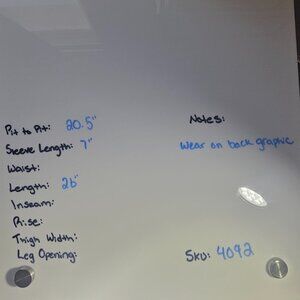 Pit to Pit: 20.5"
Sleeve Length: 7"
Waist:
Length: 26"
Inseam:
Rise:
Thigh Width:
Leg Opening:
Notes:
Wear on back graphic
SKU: 4092